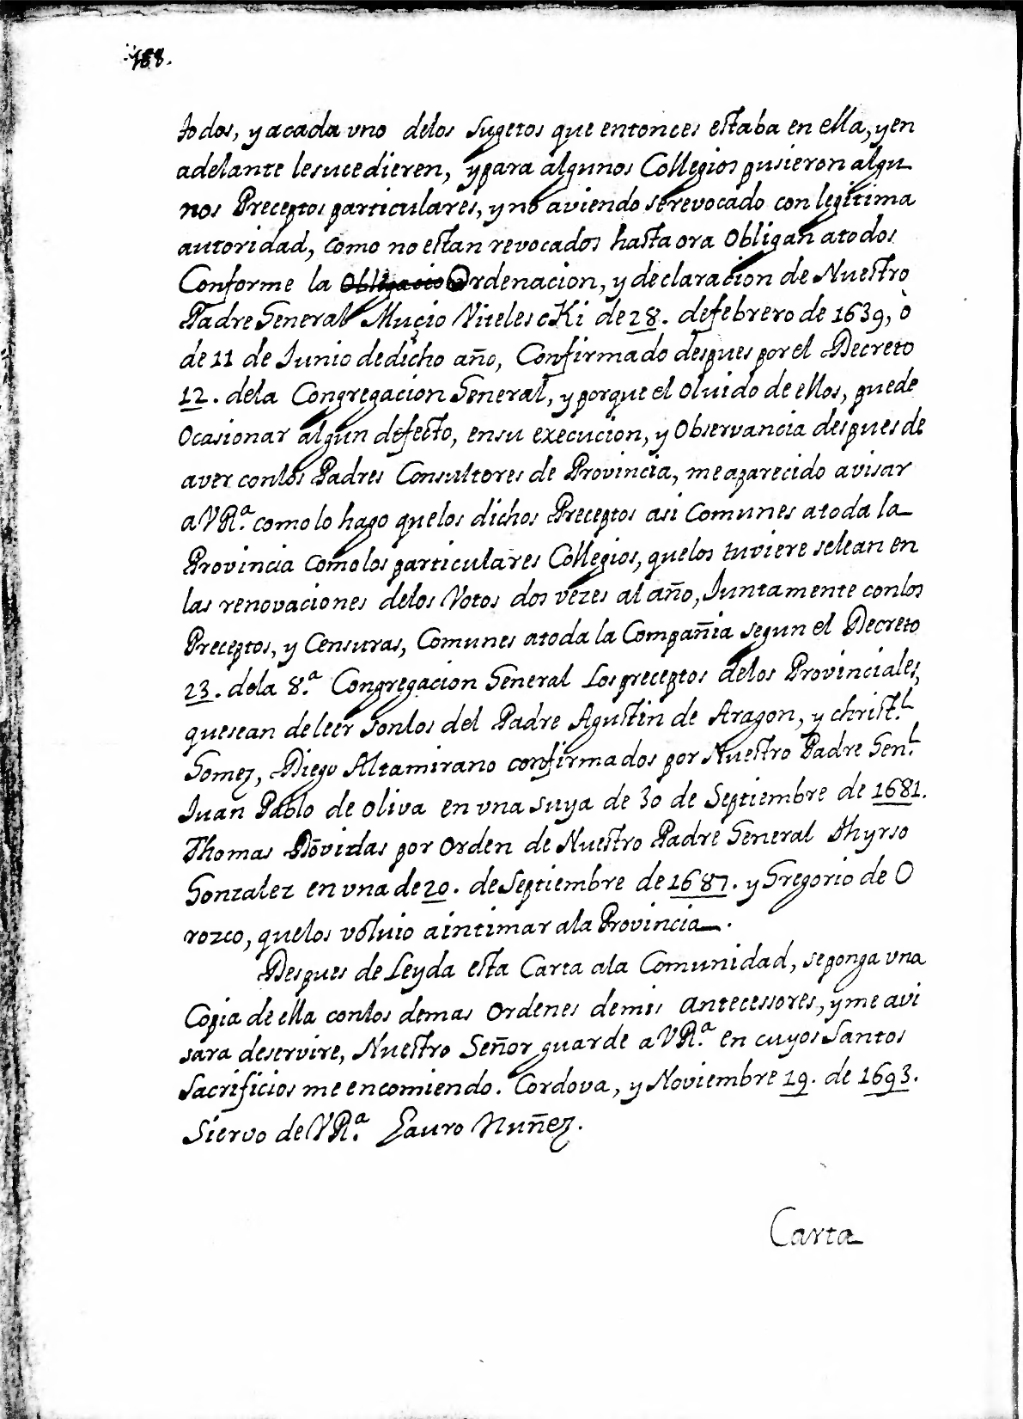 188.
todos, y acada vno delos sugetos que entonces estaba en ella, y en
adelante lesucedieren, y para algunos Collegios pusieron algu
nos Preceptos particulares, y no aviendo serevocado con legitima
autoridad, como no estan revocados hasta ora Obligan atodos
Conforme la Obligacio Ordenacion, y declaracion de Nuestro
Padre General Muçio Viteles cKi de 28. defebrero de 1639, ò
de 11 de Junio dedicho año, Confirmado despues por el Decreto
12. dela Congregacion General, y porque el olvido de ellos, puede
Ocasionar algun defecto, ensu execucion, y Observancia despues de
aver conlos Padres Consultores de Provincia, meaparecido avisar
a VR.ª como lo hago quelos dichos Preceptos asi Comunes atoda la
Provincia Como los particulares Collegios, quelos tuviere selean en
las renovaciones delos Votos dos vezes al año, Juntamente conlos
Preceptos, y Censuras, Comunes atoda la Compañia segun el Decreto
23. dela 8.ª Congregacion General Los preceptos delos Provinciales,
quesean deleer sonlos del Padre Agustin de Aragon, y christ.l
Gomez, Diego Altamirano confirmados por Nuestro Padre Gen.l
Juan Pablo de oliva en vna suya de 30 de Septiembre de 1681.
Thomas Dõvidas por orden de Nuestro Padre General Thyrso
Gonzalez en vna de 20. de Septiembre de 1687. y Gregorio de O
rozco, quelos volvio aintimar ala Provincia.
Despues de Leyda esta Carta ala Comunidad, seponga vna
Copia de ella conlos demas ordenes demis antecessores, y me avi
sara deservire, Nuestro Señor guarde a VR.ª en cuyos santos
sacrificios me encomiendo. Cordova, y Noviembre 19. de 1693.
Siervo de VR.ª Lauro Nuñez.
Carta